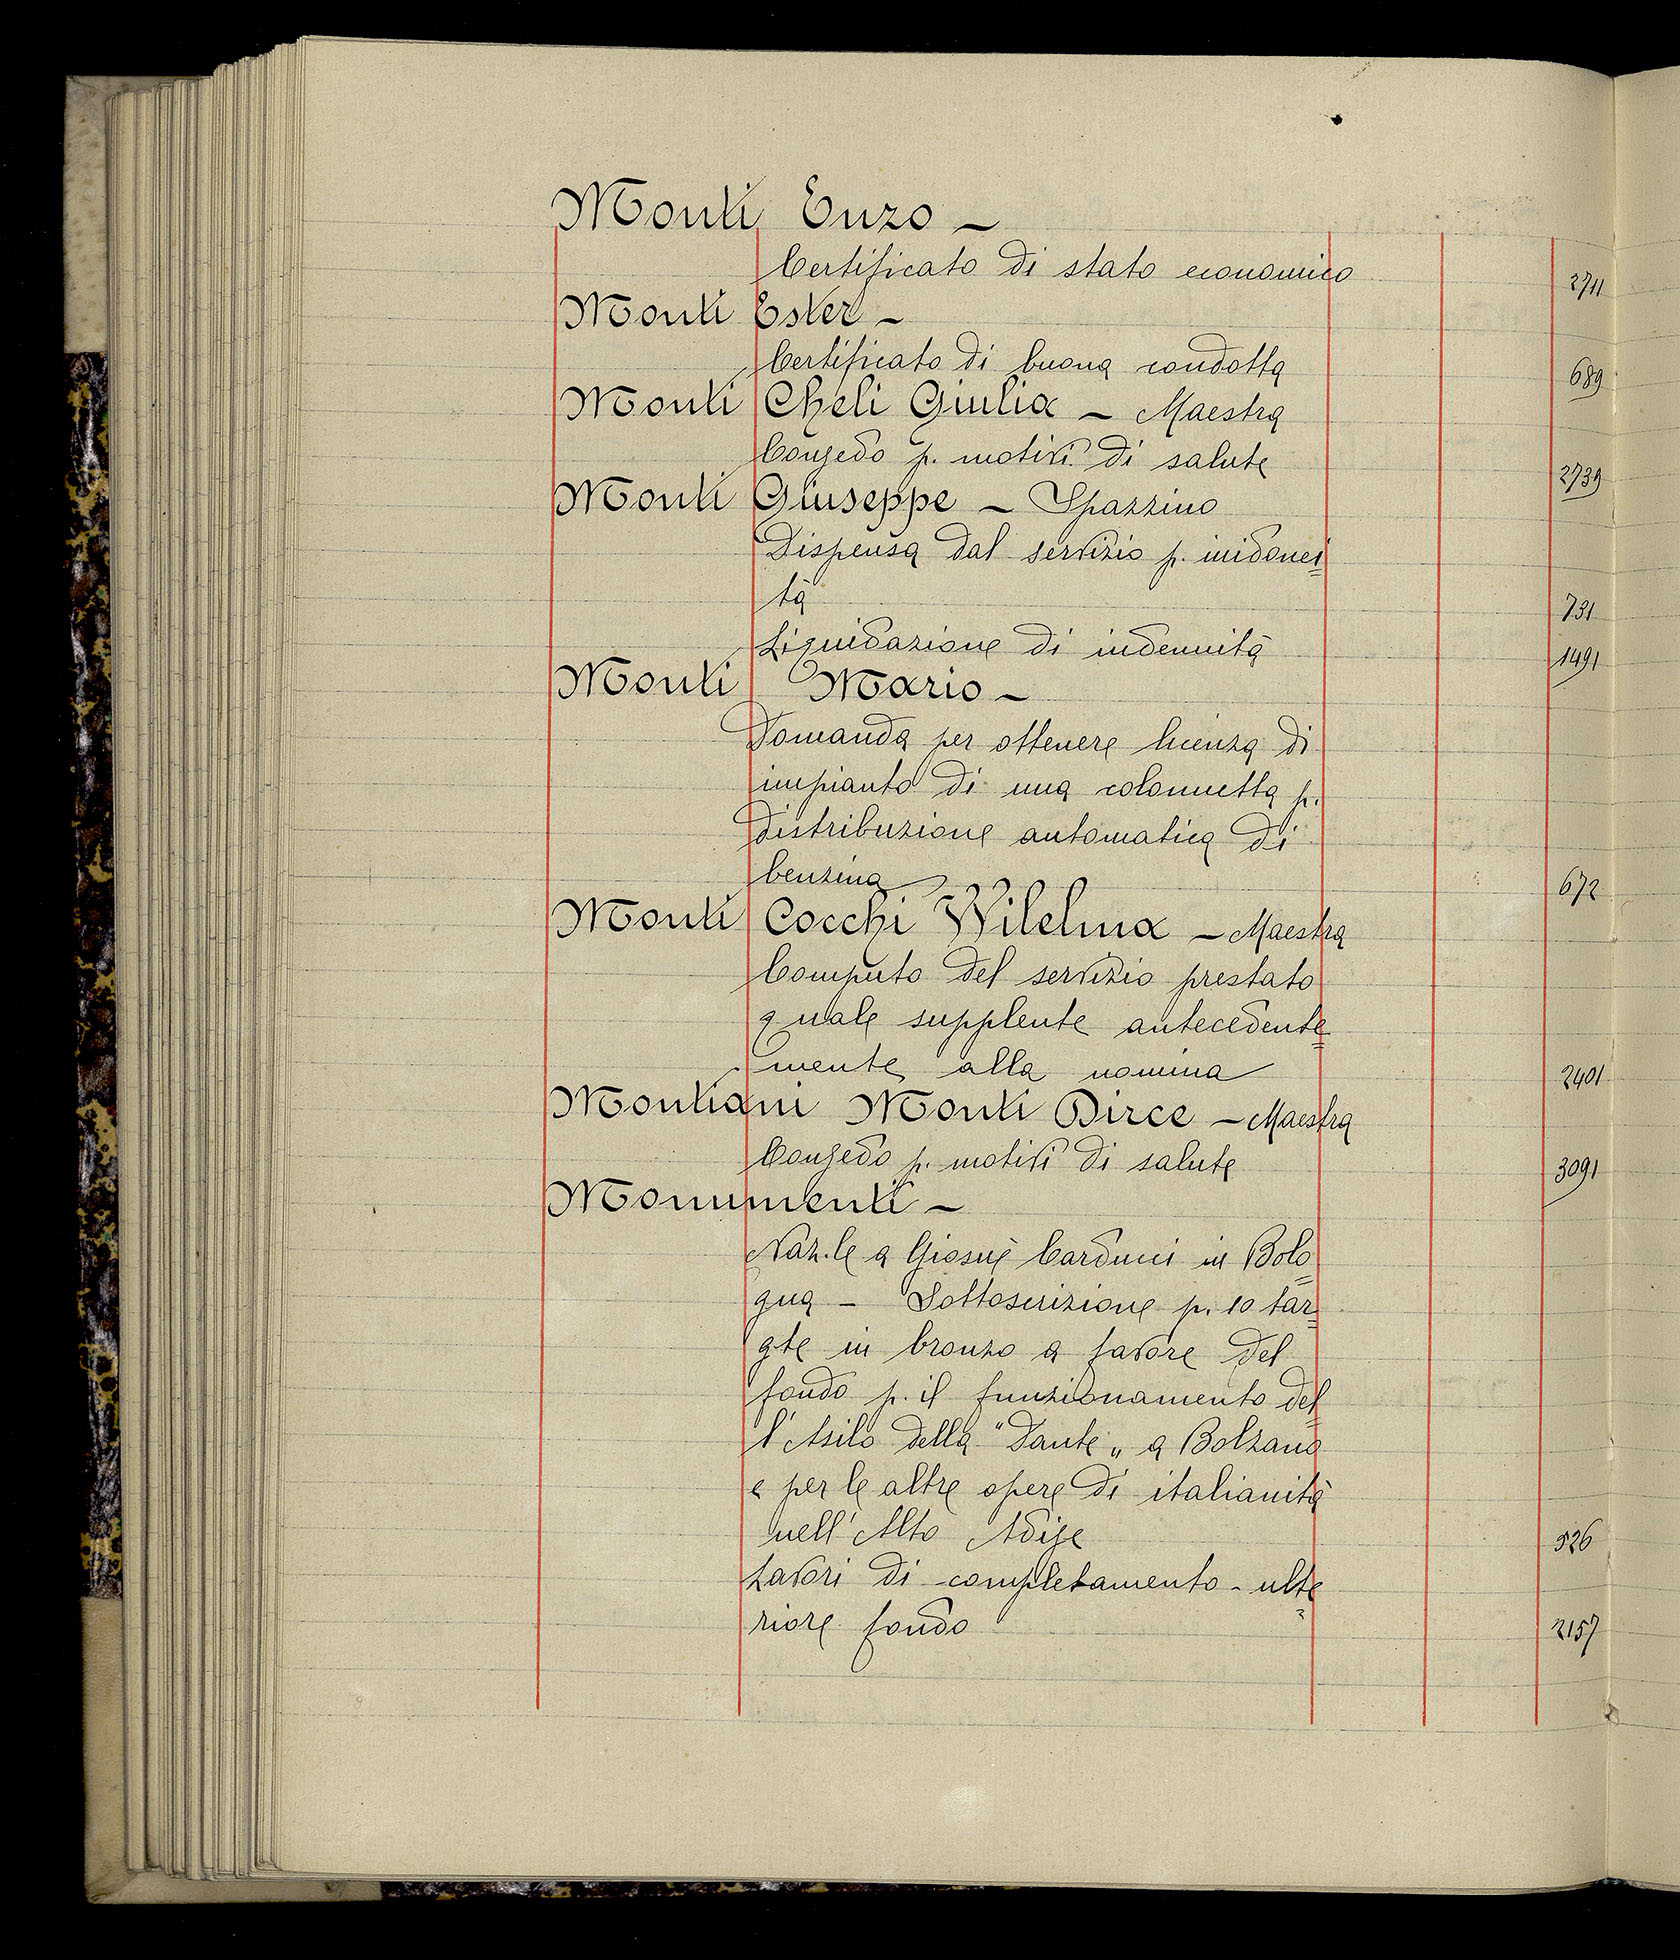 Monti Enzo –
Certificato di stato economico 2711
Monti Ester –
Certificato di buona condotta 689
Monti Cheli Giulia – Maestra
Congedo p. motivi di salute 2739
Monti Giuseppe – Spazzino
Dispensa dal servizio p. inidonei=
tà 731
Liquidazione di indennità 1491
Monti Mario –
Domanda per ottenere licenza di
impianto di una colonnetta p.
distribuzione automatica di
benzina 672
Monti Cocchi Wilelma – Maestra
Computo del servizio prestato
quale supplente antecedente=
mente alla nomina 2401
Montiani Monti Dirce – Maestra
Congedo p. motivi di salute 3091
Monumenti –
Naz.le a Giosuè Carducci in Bolo=
gna – Sottoscrizione p. 10 tar=
gte in bronzo a favore del
fondo p. il funzionamento del=
l'Asilo della "Dante„ a Bolzano
e per le altre opere di italianità
nell'Alto Adige 526
Lavori di completamento - ulte=
riore fondo 2157